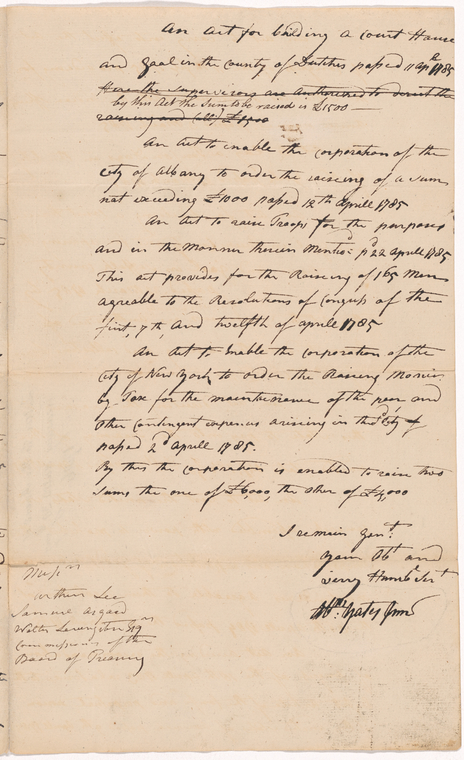 An Act for building a Court House
and Goal in the County of Dutches passed 11 Apr 1785
Here the supervisors are Authorised to direct the
by this Act the Sum to be raised is £1500 —
raising and £1500
An Act to enable the corporation of the
City of Albany to order the raising of a sum
not exceeding £1000 passed 12th Aprill 1785
An Act to raise Troops for the purposes
and in the Manner therein Mentd. pd 22 Aprill 1785
This act provides for the Raising of 165 Men
agreable to the Resolutions of Congress of the
first, 7th, and twelfth of aprill 1785
An Act to Enable the corporation of the
City of New York to order the Raising Monies
by Tax for the maintainance of the poor and
other contingent expences arising in the sd City
passed 2d Aprill 1785.
By this the corporation is enabled to raise two
sums the one of £6,000, the other of £4,000
I remain Gent.
Your Obt and
very Humbe Sert
Abm. Yates Junr
Arthur Lee
Samuel Osgood
Walter Levingston Esqrs
Commissioners of the
Board of Treasury